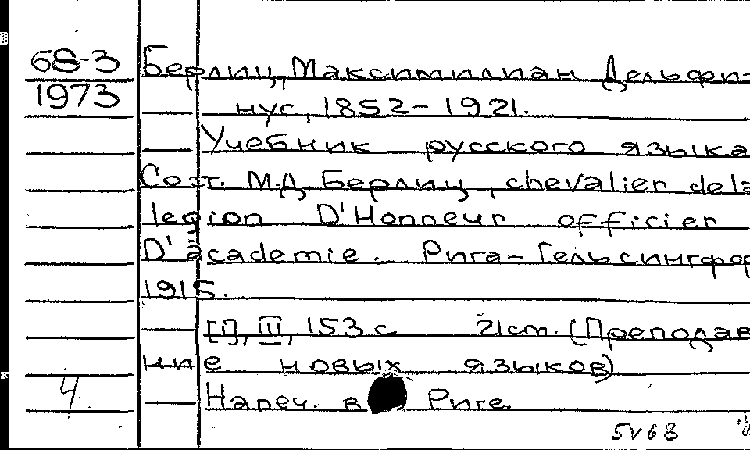 68-3 Берлиц, Максимилиан Дельфи-
1973 нус, 1852-1921.
Учебник русского языка
Сост. М.Д. Берлиц, chevalier dela
legion D'Honneur officier
D'academie. Рига-Гельсингфор
1915.
[1], III, 153 с 21см. (Преподава
ние новых языков)
4 Напеч. в Риге.
5v68